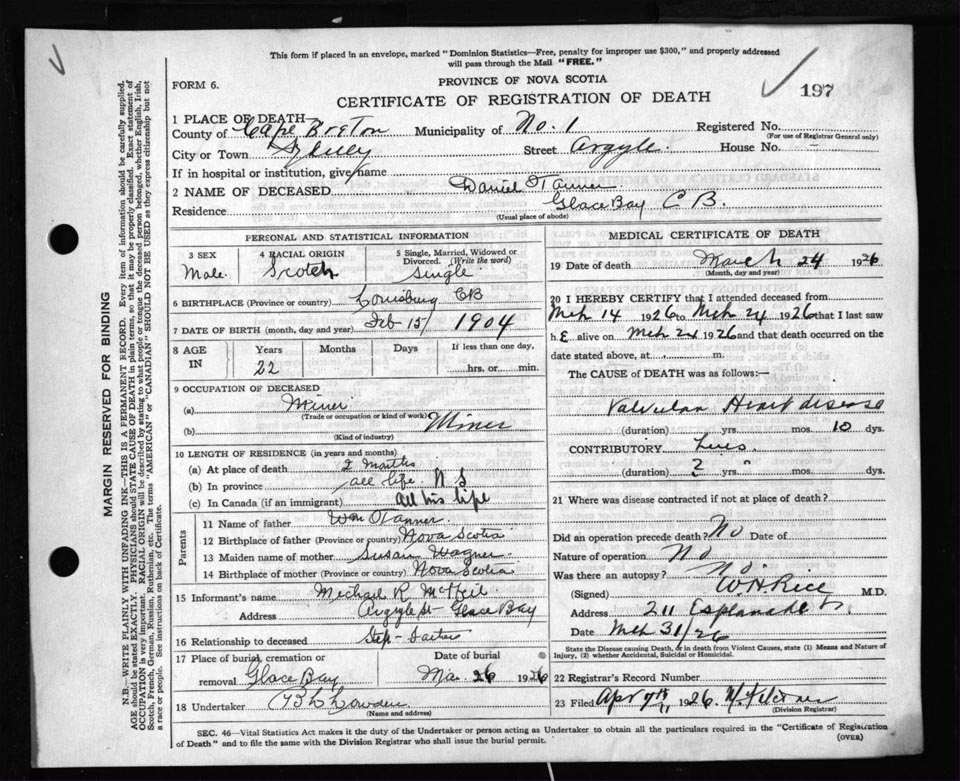 This form if placed in an envelope, marked "Dominion Statistics—Free, penalty for improper use $300," and properly addressed
will pass through the Mail "FREE."
FORM 6.
PROVINCE OF NOVA SCOTIA
CERTIFICATE OF REGISTRATION OF DEATH
197
1 PLACE OF DEATH
County of Cape Breton Municipality of No. 1 Registered No.
(For use of Registrar General only)
City or Town Sydney Street Argyle. House No. –
If in hospital or institution, give name
2 NAME OF DECEASED Daniel Tanner
Residence Glace Bay C B.
(Usual place of abode)
PERSONAL AND STATISTICAL INFORMATION
3 SEX 4 RACIAL ORIGIN 5 Single, Married, Widowed or Divorced. (Write the word)
Male. Scotch Single
6 BIRTHPLACE (Province or country) Louisburg CB
7 DATE OF BIRTH (month, day and year) Feb 15/ 1904
8 AGE IN Years Months Days If less than one day,
22 hrs. or min.
9 OCCUPATION OF DECEASED
(a) Miner
(Trade or occupation or kind of work)
(b) Mines
(Kind of industry)
10 LENGTH OF RESIDENCE (in years and months)
(a) At place of death 2 months
(b) In province all life. N S
(c) In Canada (if an immigrant) All his life
Parents
11 Name of father Wm Tanner.
12 Birthplace of father (Province or country) Nova Scotia
13 Maiden name of mother Susan Wagner
14 Birthplace of mother (Province or country) Nova Scotia
15 Informant's name Michael R McNeil
Address Argyle St Glace Bay
16 Relationship to deceased Step-
17 Place of burial, cremation or removal Glace Bay Date of burial Mar 26 1926
18 Undertaker
(Name and address)
MEDICAL CERTIFICATE OF DEATH
19 Date of death March 24 1926
(Month, day and year)
20 I HEREBY CERTIFY that I attended deceased from
Mch 14 1926 to Mch 24 1926 that I last saw
h E alive on Mch 24 1926 and that death occurred on the
date stated above, at m.
The CAUSE of DEATH was as follows:—
Valvular Heart disease
(duration) yrs. mos. 10 dys.
CONTRIBUTORY Lues
(duration) 2 yrs. " mos. dys.
21 Where was disease contracted if not at place of death?
Did an operation precede death? No Date of
Nature of operation No
Was there an autopsy? No
(Signed) W.H. Rice M.D.
Address 211 Esplanade
Date Mch 31/26
State the Disease causing Death, or in death from Violent Causes, state (1) Means and Nature of
Injury, (2) whether Accidental, Suicidal or Homicidal.
22 Registrar's Record Number
23 Filed Apr 9th 1926.
(Division Registrar)
SEC. 46—Vital Statistics Act makes it the duty of the Undertaker or person acting as Undertaker to obtain all the particulars required in the "Certificate of Registration
of Death" and to file the same with the Division Registrar who shall issue the burial permit.
(OVER)
MARGIN RESERVED FOR BINDING
N.B.—WRITE PLAINLY WITH UNFADING INK—THIS IS A PERMANENT RECORD. Every item of information should be carefully supplied.
AGE should be stated EXACTLY. PHYSICIANS should STATE CAUSE OF DEATH in plain terms, so that it may be properly classified. Exact statement of
OCCUPATION is very important. RACIAL ORIGIN will be described by stating to what people or tongue the deceased person belonged, whether English, Irish,
Scotch, French, German, Russian, Ruthenian, etc. The terms "AMERICAN" or "CANADIAN" SHOULD NOT BE USED as they express citizenship but not
a race or people. See instructions on back of Certificate.